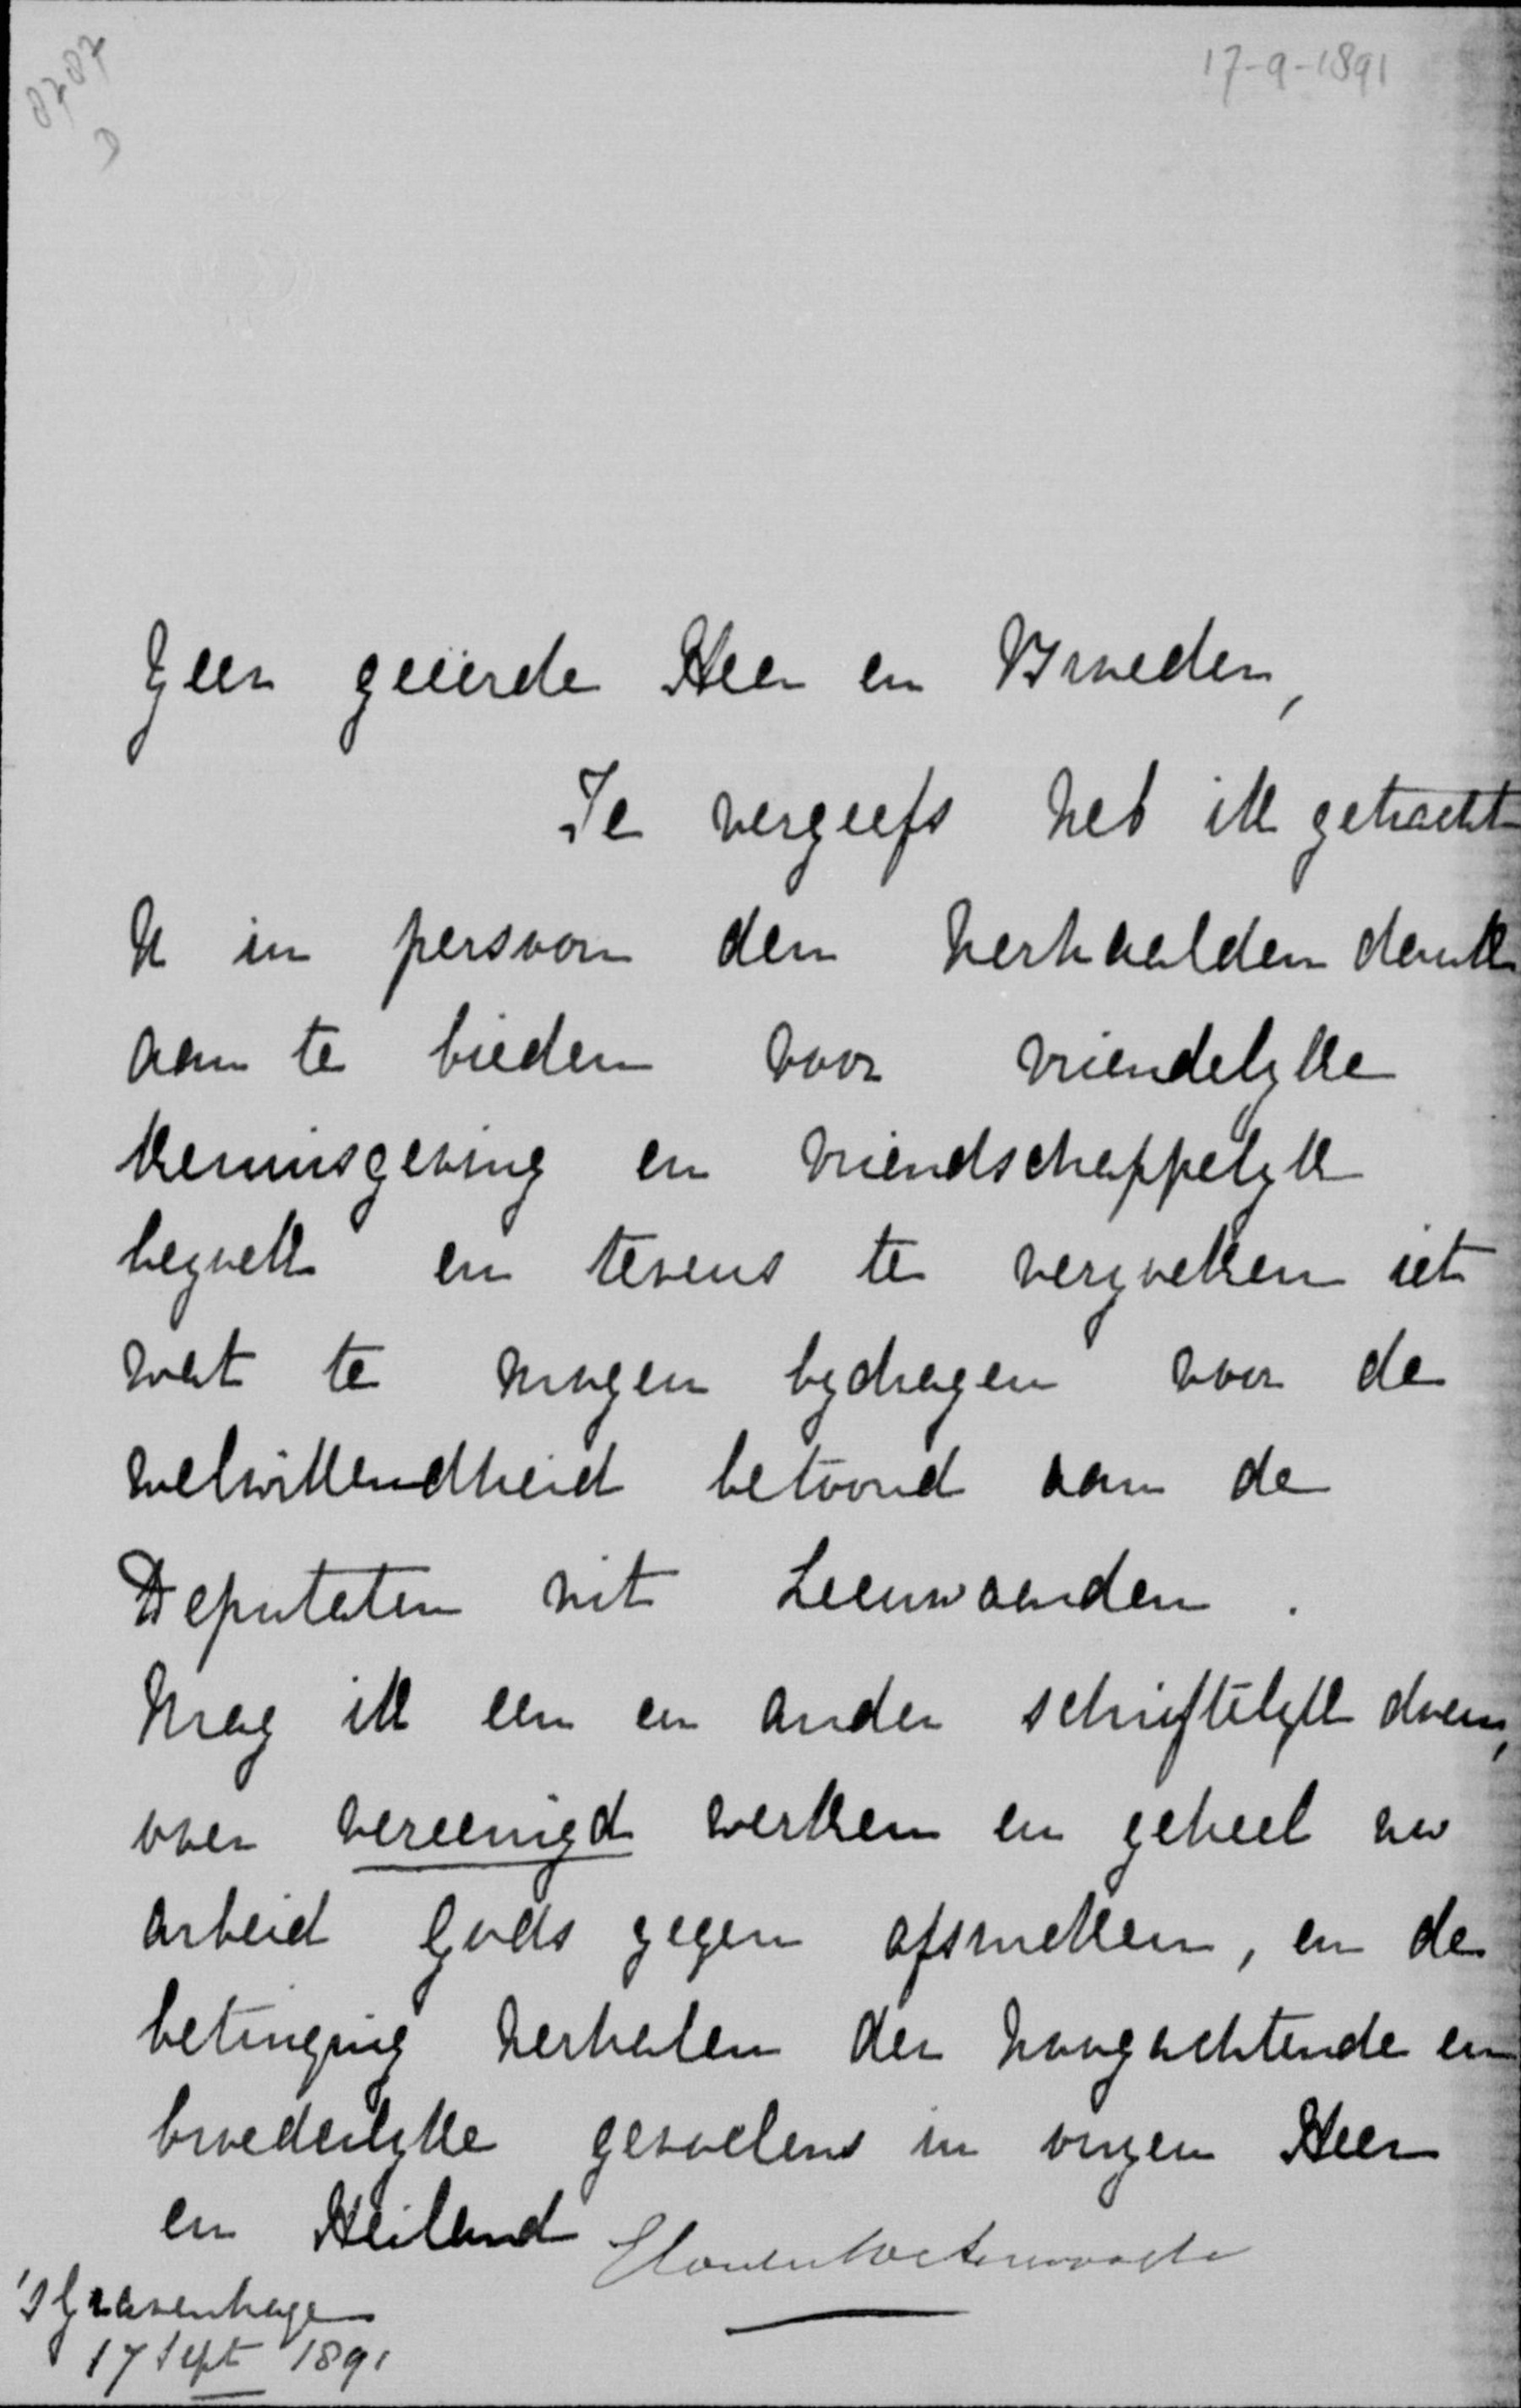 8787
D
17-9-1891
Zeer geëerde Heer en Broeder,
Te vergeefs heb ik getracht
U in persoon den herhaalden dank
aan te bieden voor vriendelyke
kennisgeving en vriendschappelyk
bezoek en tevens te verzoeken iet
wat te mogen bydragen voor de
welwillendheid betoond aan de
Deputaten uit Leeuwarden.
Mag ik een en ander schriftelyk doen,
voor vereenigd werken en geheel uw
arbeid Gods zegen afsmeken, en de
betuiging herhalen der hoogachtende en
broederlyke gevoelens in onzen Heer
en Heiland
's Gravenhage
17 Sept 1891